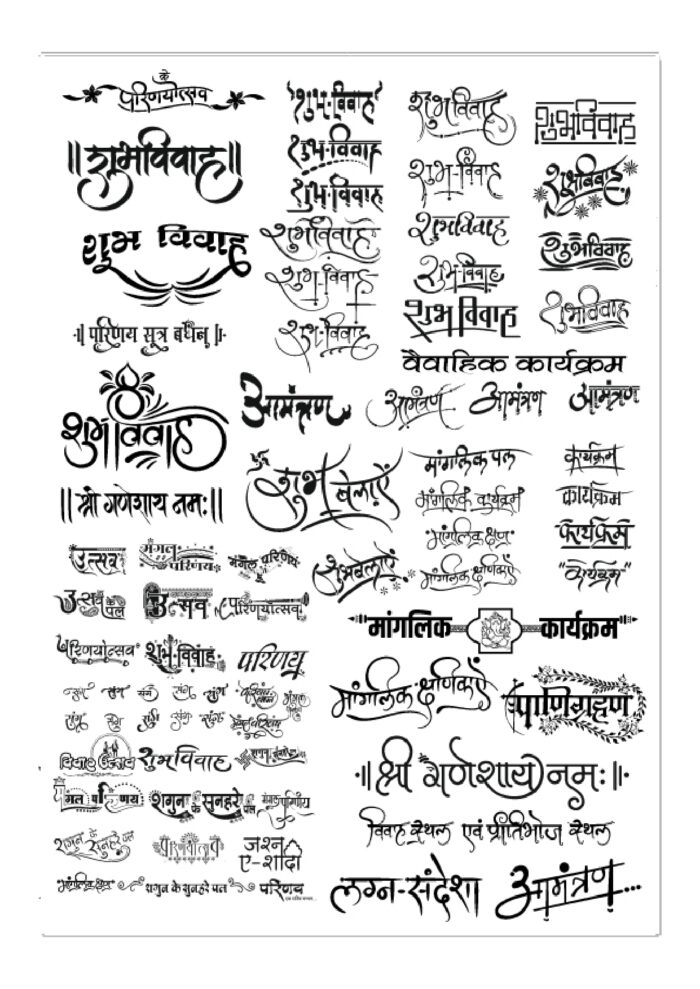 के
परिणयोत्सव
॥शुभविवाह॥
शुभ विवाह
॥ परिणय सूत्र बंधन् ॥
शुभविवाह
॥ श्री गणेशाय नमः॥
शुभ-विवाह
शुभ-विवाह
शुभ-विवाह
शुभविवाह
शुभ-विवाह
शुभ-विवाह
शुभविवाह
शुभ-विवाह
शुभविवाह
शुभ-विवाह
शुभविवाह
शुभविवाह
शुभविवाह
शुभविवाह
शुभविवाह
वैवाहिक कार्यक्रम
आमंत्रण
आमंत्रण
आमंत्रण
आमंत्रण
शुभ बेलाएँ
शुभबेलाएँ
मांगलिक पल
मांगलिक कार्यक्रम
मांगलिक क्षण
मांगलिक क्षणिकाएँ
कार्यक्रम
कार्यक्रम
कार्यक्रम
"कार्यक्रम"
उत्सव
मंगल परिणय
मंगल परिणय
उत्सव के पल
उत्सव
परिणयोत्सव
परिणयोत्सव
शुभ-विवाह
परिणय
विवाह उत्सव
शुभविवाह
मंगल परिणय
शगुन के सुनहरे पल
मंगल परिणय
शगुन के सुनहरे पल
परिणयोत्सव
जश्न
ए-शादी
मांगलिक क्षण
शगुन के सुनहरे पल
परिणय
मांगलिक कार्यक्रम
मांगलिक क्षणिकाएँ
पाणिग्रहण
॥श्री गणेशाय नमः॥
विवाह स्थल एवं प्रीतिभोज स्थल
लग्न-संदेश
आमंत्रण...